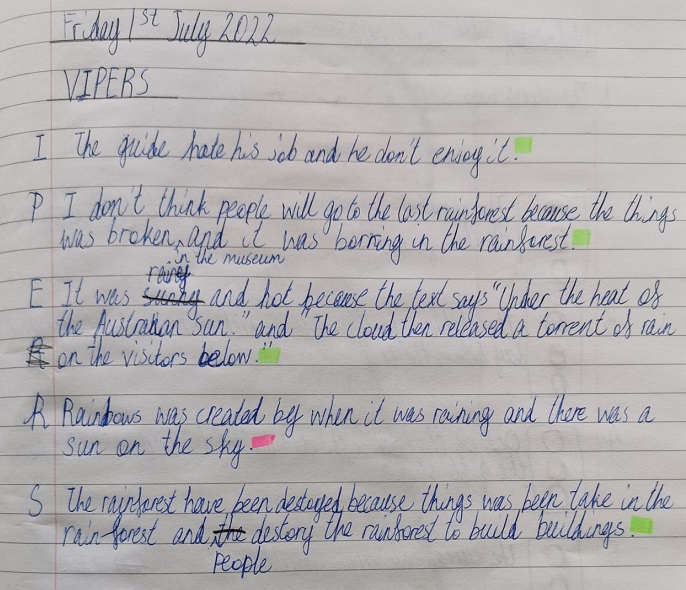 Friday 1st July 2022
VIPERS
I The guide hate his job and he don't enjoy it.
P I don't think people will go to the last rainforest because the things
was broken, and it was borring in the rainforest.
in the museum
rainy
E It was sunny and hot because the text says "Under the heat of
the Australian sun." and "The cloud then released a torrent of rain
on the visitors below."
R Rainbows was created by when it was raining and there was a
sun on the sky.
S The rainforest have been destoyed because things was been take in the
rainforest and the destory the rainforest to build buildings.
People